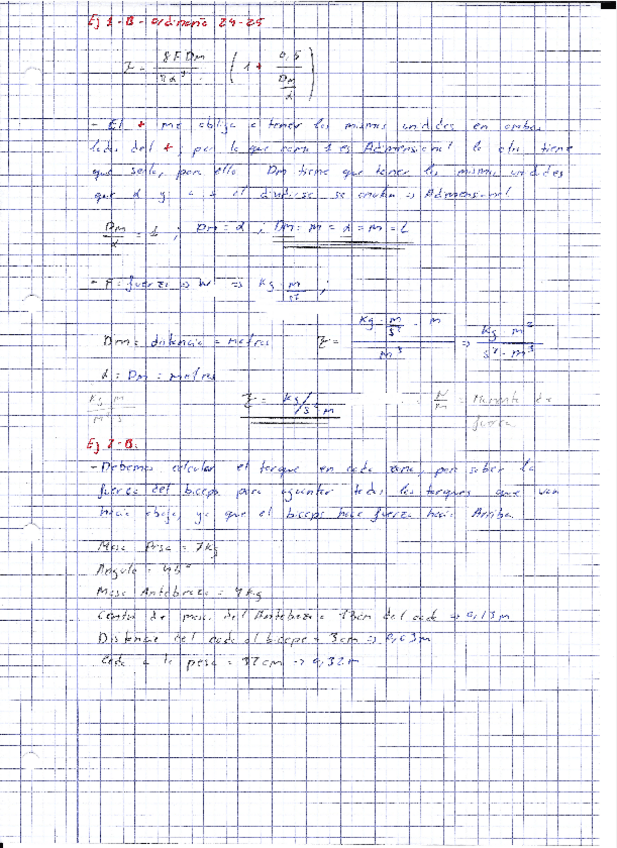 Ej 1-B-ordinaria 24-25
τ = 8 F Dm / π d³ ( 1 + 0,5 / Dm/d )
- El + me obliga a tener las mismas unidades en ambos
lados del +, por lo que como 1 es Admensional lo otro tiene
que serlo, para ello Dm tiene que tener las mismas unidades
que d y el dividirse se Admensional
Dm/d = 1 ; Dm = d ; Dm = m = d = m = L
- F = fuerza ⇒ N ⇒ Kg m/s² ;
Dm = distancia = metros τ = Kg · m/s² · m / m³ ⇒ Kg m² / s² · m³
d = Dm = metros
Kg m / m s τ = Kg/s² m N/m = Momento de
fuerza
Ej 2-B.
- Debemos calcular el torque en cada zona, para saber la
fuerza del biceps para aguantar todos los torques que van
hacia abajo, ya que el biceps hace fuerza hacia Arriba.
Masa Pesa = 7Kg
Angulo = 45°
Masa Antebrazo = 4Kg
Centro de masa del Antebrazo 13cm del codo ⇒ 0,13m
Distancia del codo al biceps = 3cm ⇒ 0,03m
Codo a la pesa = 32cm ⇒ 0,32m